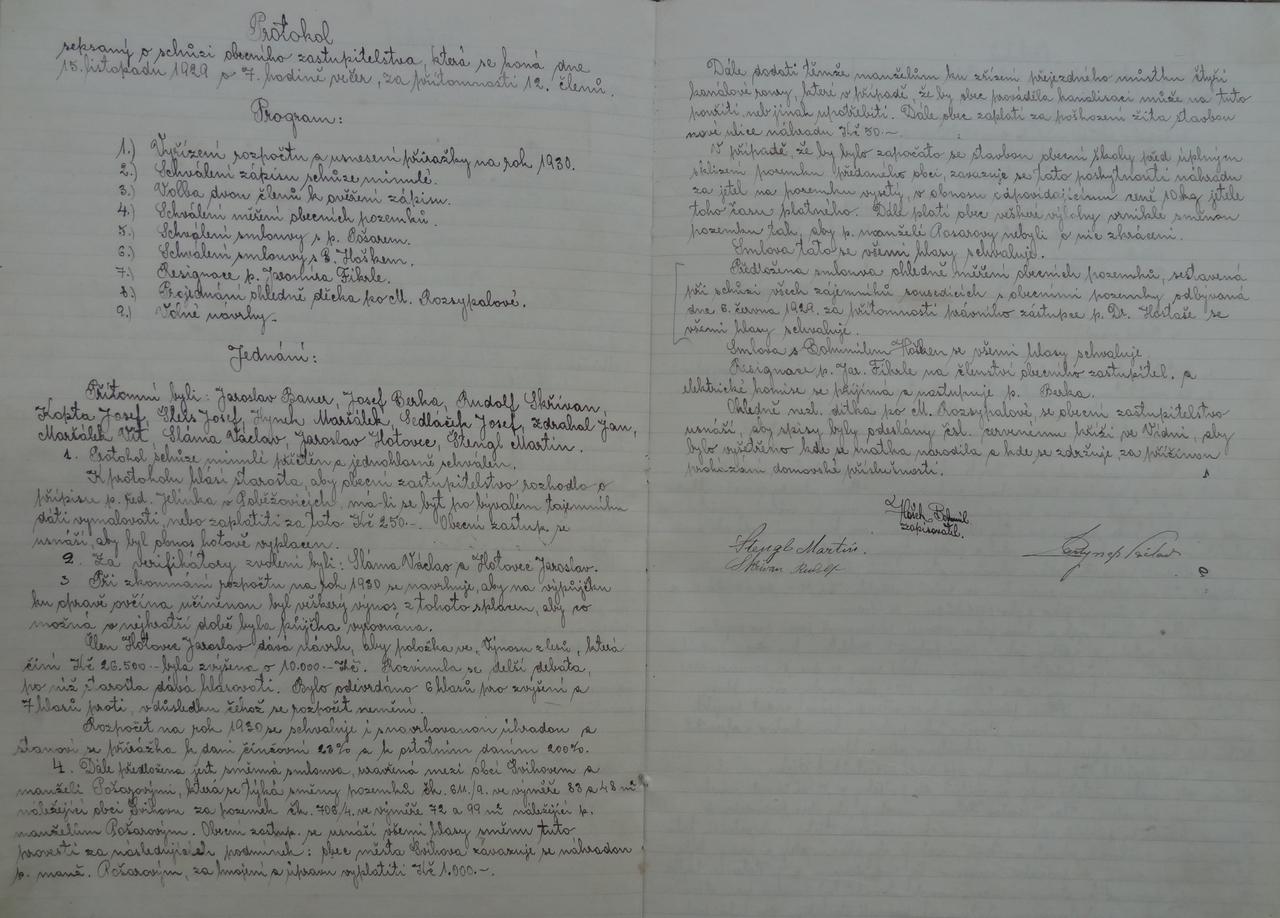 Protokol
sepsaný o schůzi obecního zastupitelstva, která se koná dne
15. listopadu 1929 o 7. hodině večer, za přítomnosti 12. členů.
Program:
1.) Vyřízení rozpočtu a usnesení přirážky na rok 1930.
2.) Schválení zápisu schůze minulé.
3.) Volba dvou členů k ověření zápisu.
4.) Schválení měření obecních pozemků.
5.) Schválení smlouvy s p. Požarem.
6.) Schválení smlouvy s B. Hoškem.
7.) Resignace p. Jaromíra Fikrle.
8.) Projednání ohledně děcka po M. Rozsypalové.
9.) Volné navrhy.
Jednání:
Přítomni byli: Jaroslav Bauer, Josef Berka, Rudolf Skřivan,
Kopta Josef, Kleis Josef, Hynek Maršálek, Sedláček Josef, Zdrahal Jan,
Maršálek Vít, Sláma Václav, Jaroslav Hotovec, Stengl Martin.
1. Protokol schůze minulé přečten a jednohlasně schválen.
K protokolu hlásí starosta, aby obecní zastupitelstvo rozhodlo o
přípisu p. řed. Jelínka v Poběžovicích, má-li se byt po bývalém tajemníku
dáti vymalovati, nebo zaplatiti za toto Kč 250.- Obecní zastup. se
usnáší, aby byl obnos hotově vyplacen.
2. Za verifikátory zvoleni byli: Sláma Václav a Hotovec Jaroslav.
3 Při zkoumání rozpočtu na rok 1930 se navrhuje, aby na výpůjčku
ku opravě ovčína učiněnou byl veškerý výnos z tohoto splacen, aby co
možná v nejkratší době byla půjčka vyrovnána.
Člen Hotovec Jaroslav dává návrh, aby položka ve „Výnosu z lesů, která
činí Kč 26.500.- byla zvýšena o 10.000.- Kč. Rozvinula se delší debata,
po níž starosta dává hlasovati. Bylo odevzdáno 6 hlasů pro zvýšení a
7 hlasů proti, v důsledku čehož se rozpočet nemění.
Rozpočet na rok 1930 se schvaluje i s navrhovanou úhradou a
stanoví se přirážka k dani činžovní 23% a k ostatním daním 200%.
4. Dále předložena jest směnná smlouva, uzavřená mezi obcí Švihovem a
manželi Požarovými, která se týká směny pozemků čk. 611/9. ve výměře 83 a 48 m²
náležející obci Švihovu za pozemek čk. 708/4. ve výměře 72 a 99 m² náležející p.
manželům Požarovým. Obecní zastup. se usnáší všemi hlasy směnu tuto
provesti za následujících podmínek: obec města Švihova zavazuje se náhradou
p. manž. Požarovým, za hnojení a úpravu vyplatiti Kč 1.000.-
Dále dodati těmže manželům ku zřízení přejezdného můstku čtyři
kanálové roury, které v případě, že by obec prováděla kanalisaci může na tuto
použíti, neb jinak upotřebiti. Dále obec zaplatí za poškození žita stavbou
nové ulice náhradu Kč 50.-
V případě, že by bylo započato se stavbou obecní školy před úplným
sklizení pozemku předaného obci, zavazuje se tato poskytnouti náhradu
za jetel na pozemku vysetý, v obnosu odpovídajícímu ceně 10 kg jetele
toho času platného. Dále platí obec veškere výlohy vzniklé směnou
pozemku tak, aby p. manželé Požarovy nebyli o nic zkráceni.
Smlova tato se všemi hlasy schvaluje.
Předložena smlouva ohledně měření obecních pozemků, sestavená
při schůzi všech zájemníků sousedících s obecními pozemky odbývaná
dne 6. června 1929. za přítomnosti právního zástupce p. Dr. Hostaše se
všemi hlasy schvaluje.
Smlova s Bohumilem Hoškem se všemi hlasy schvaluje.
Resignace p. Jar. Fikrle na členství obecního zastupitel. a
elektrické komise se přijímá a nastupuje p. Berka.
Ohledně nezl. dítka po M. Rozsypalové, se obecní zastupitelstvo
usnáší, aby spisy byly odeslány čsl. červenému kříži ve Vídni, aby
bylo vyšetřeno kde se matka narodila a kde se zdržuje za příčinou
prokázání domovské příslušnosti.
Hošek Bohumil
zapisovatel.
Stengl Martin.
Skřivan Rudolf
Václav